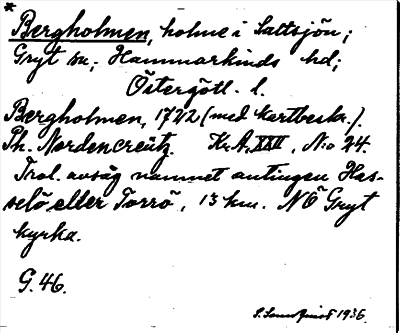 * Bergholmen, holme i Saltsjön;
Gryt sn; Hammarkinds hd;
Östergötl. l.
Bergholmen, 1722 (med kartbeskr.).
Ph. Nordencreutz. Kr.A, XXII, N:o 24.
Trol. avsåg namnet antingen Has-
selö eller Torrö, 13 km. NÖ Gryt
kyrka.
G. 46.
1936.